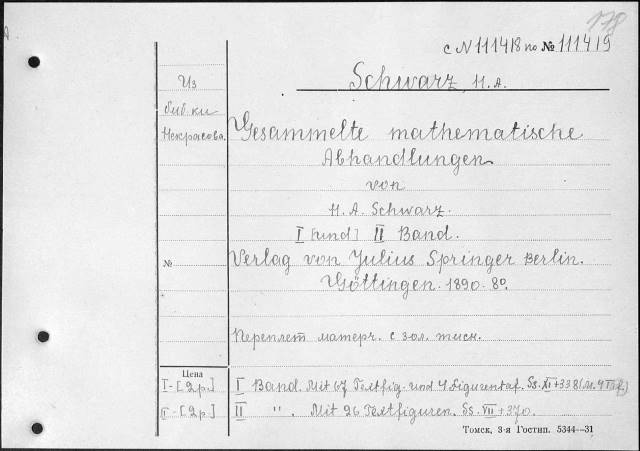 178
с N 111418 по № 111419
Schwarz, H. A.
Из
биб-ки
Некрасова.
Gesammelte mathematische
Abhandlungen
von
H. A. Schwarz.
I [und] II Band.
№
Verlag von Julius Springer Berlin.
Göttingen. 1890. 8°.
Переплет матерч. с зол. тисн.
Цена
I-[2р.]
I Band. Mit 67 Textfig. und 4 Figurentaf. Ss. XI+338 (м. 4 Taf.)
II-[2р.]
II " . Mit 26 Textfiguren. Ss. VII+370.
Томск, 3-я Гостип. 5344—31